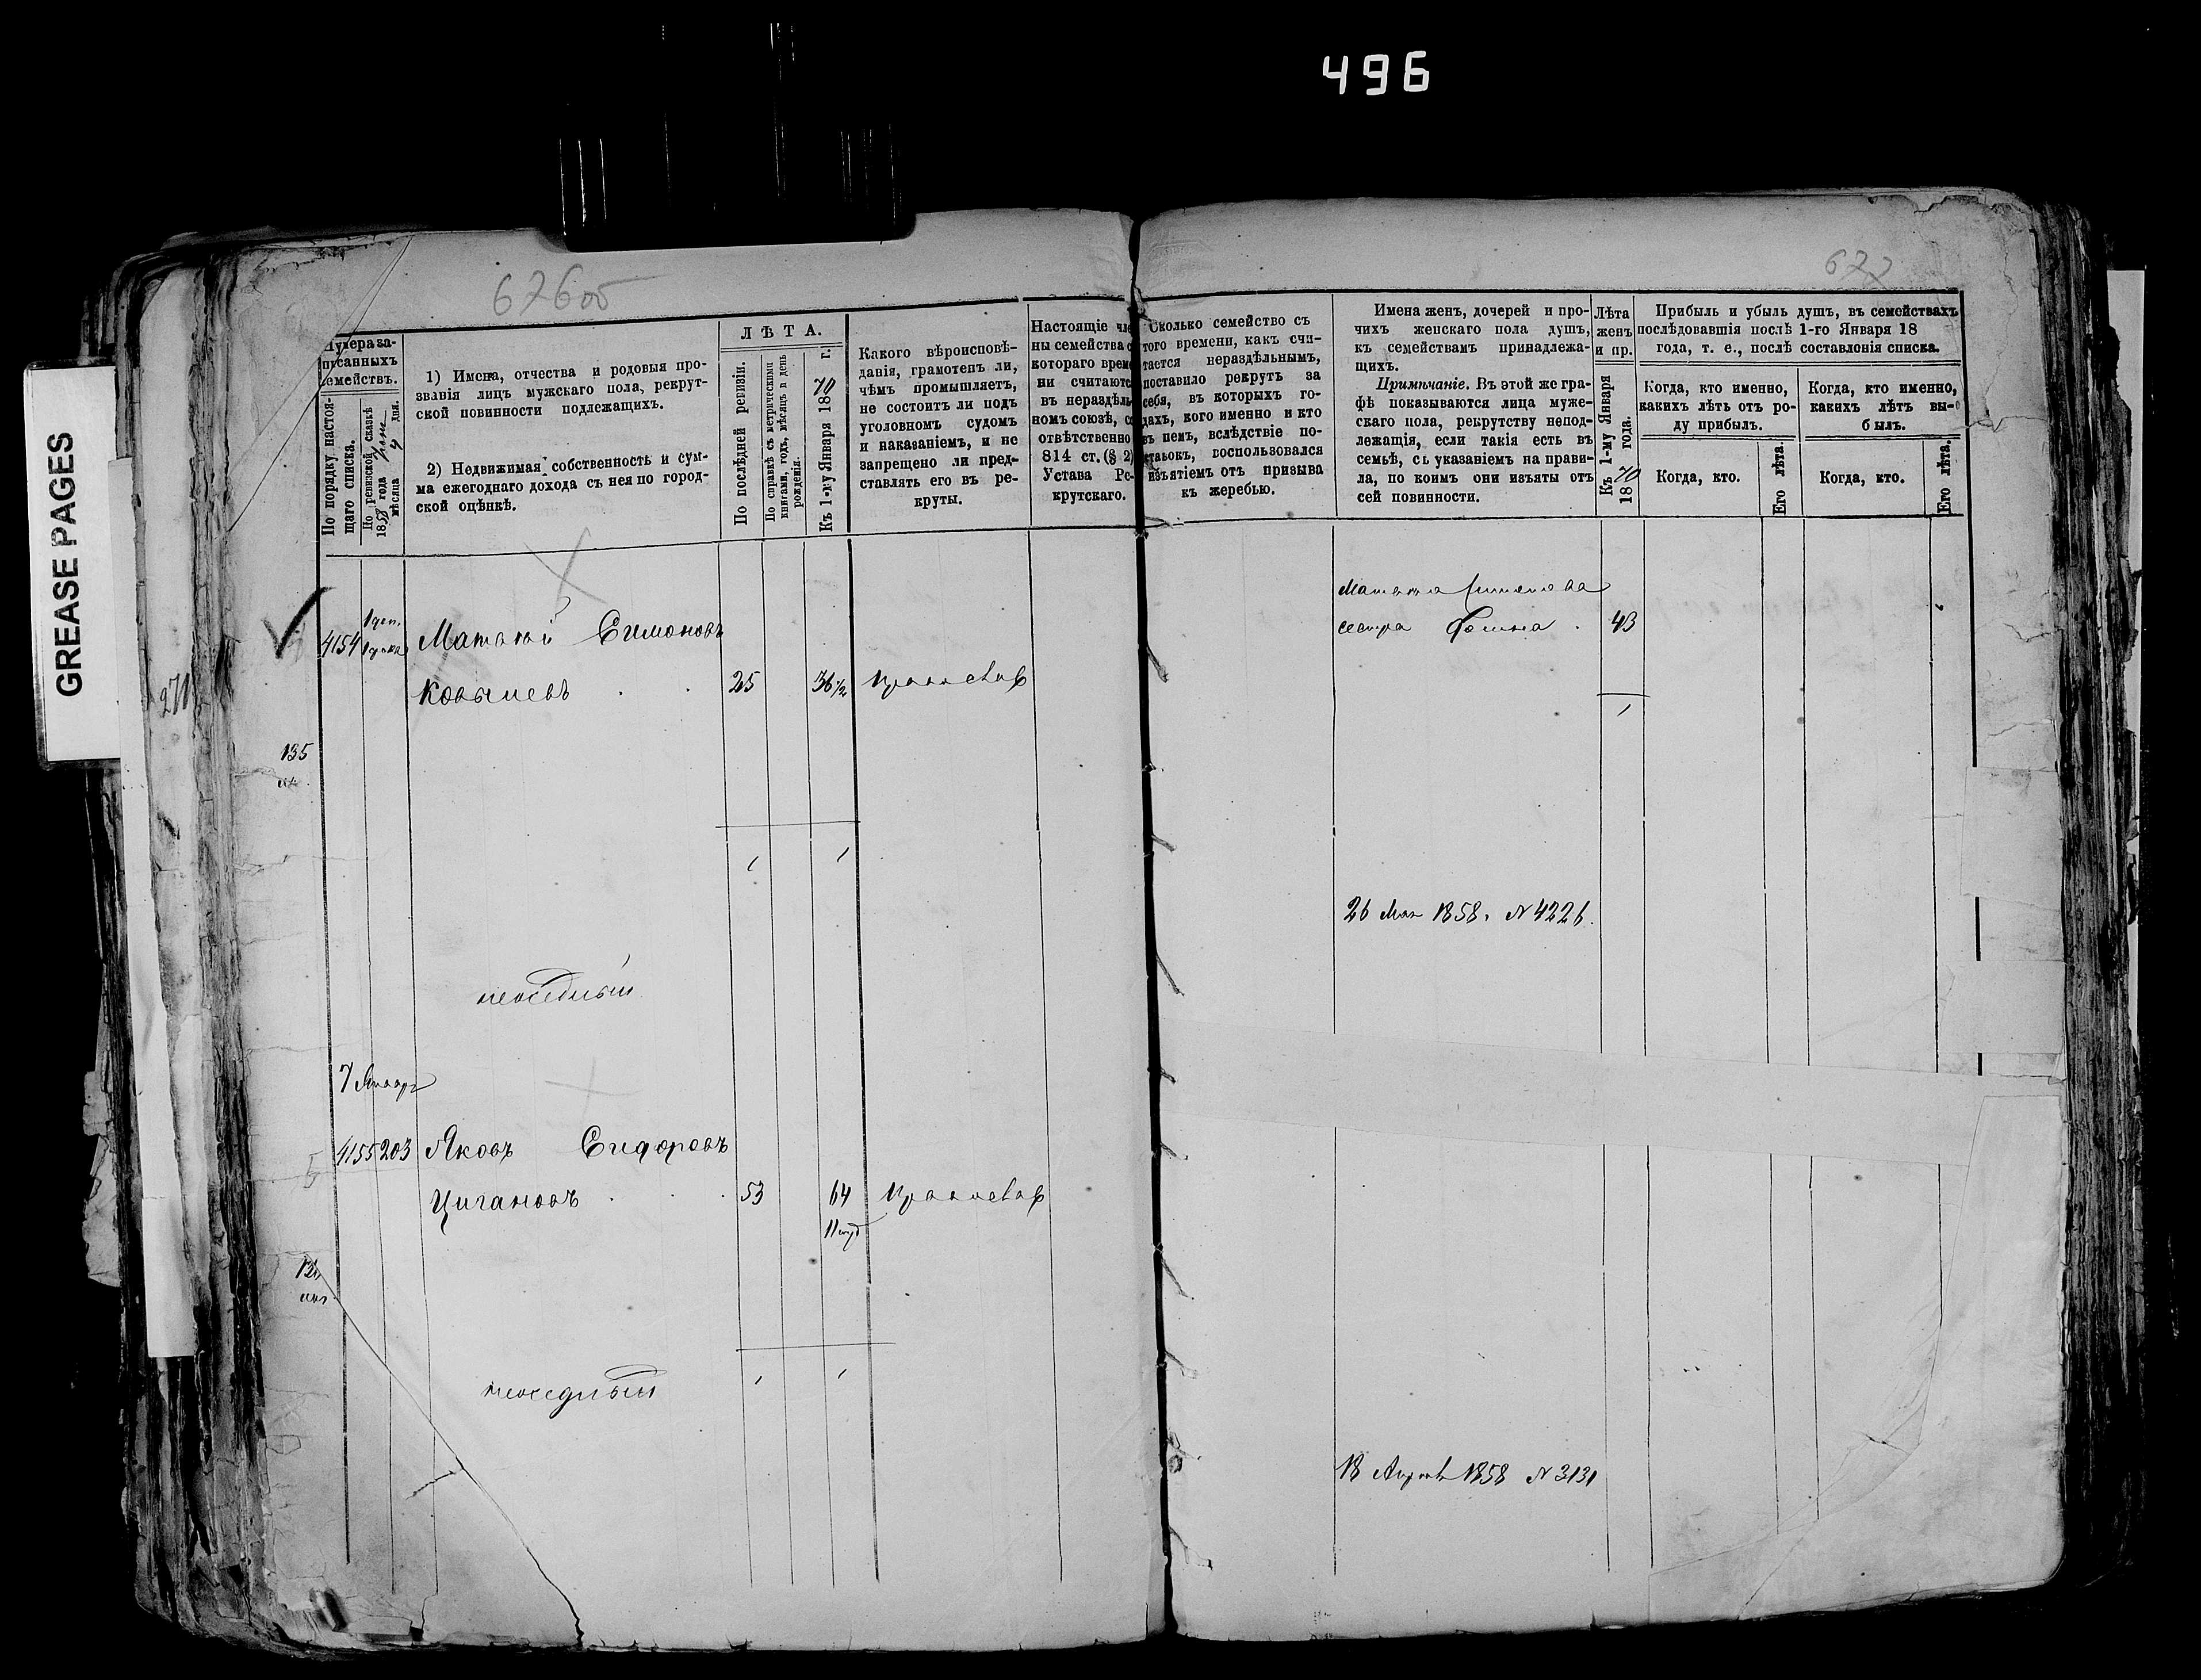 496
GREASE PAGES
676об
677
271
Нумера за-
писанныхъ
семействъ.
По порядку настоя-
щаго списка.
По ревизской сказкѣ
1858 года
мѣсяца 9 дня.
1) Имена, отчества и родовыя про-
званія лицъ мужскаго пола, рекрут-
ской повинности подлежащихъ.
2) Недвижимая собственность и сум-
ма ежегоднаго дохода съ нея по город-
ской оцѣнкѣ.
ЛѢТА.
По послѣдней ревизіи.
По справкѣ съ метрическими
книгами, годъ, мѣсяцъ и день
рожденія.
Къ 1-му Января 1870 г.
Какого вѣроисповѣ-
данія, грамотенъ ли,
чѣмъ промышляетъ,
не состоитъ ли подъ
уголовнымъ судомъ
и наказаніемъ, и не
запрещено ли пред-
ставлять его въ ре-
круты.
Настоящіе чле
ны семейства с
котораго време
ни считаютс
въ нераздѣль
номъ союзѣ, со
отвѣтственно
814 ст. (§ 2)
Устава Ре-
крутскаго.
Сколько семейство съ
того времени, какъ счи-
тается нераздѣльнымъ,
поставило рекрутъ за
себя, въ которыхъ го-
дахъ, кого именно и кто
въ немъ, вслѣдствіе по-
ставокъ, воспользовался
изъятіемъ отъ призыва
къ жеребью.
Имена женъ, дочерей и про-
чихъ женскаго пола душъ,
къ семействамъ принадлежа-
щихъ.
Примѣчаніе. Въ этой же гра-
фѣ показываются лица муже-
скаго пола, рекрутству непод-
лежащія, если такія есть въ
семьѣ, съ указаніемъ на прави-
ла, по коимъ они изъяты отъ
сей повинности.
Лѣта
женъ
и пр.
Къ 1-му Января
1870 года.
Прибыль и убыль душъ, въ семействахъ
послѣдовавшія послѣ 1-го Января 18
года, т. е., послѣ составленія списка.
Когда, кто именно,
какихъ лѣтъ отъ ро-
ду прибылъ.
Когда, кто.
Его лѣта.
Когда, кто именно,
какихъ лѣтъ вы-
былъ.
Когда, кто.
Его лѣта.
4154 Матвѣй Симоновъ
25 36½
сестра Фекла 43
1
135
1 1
26 Мая 1858. N 4226.
неоседлый
7 Января
4155 203 Яковъ Сидоровъ
Цигановъ 53 64
неоседлый 1 1
18 Апреля 1858 N 3131